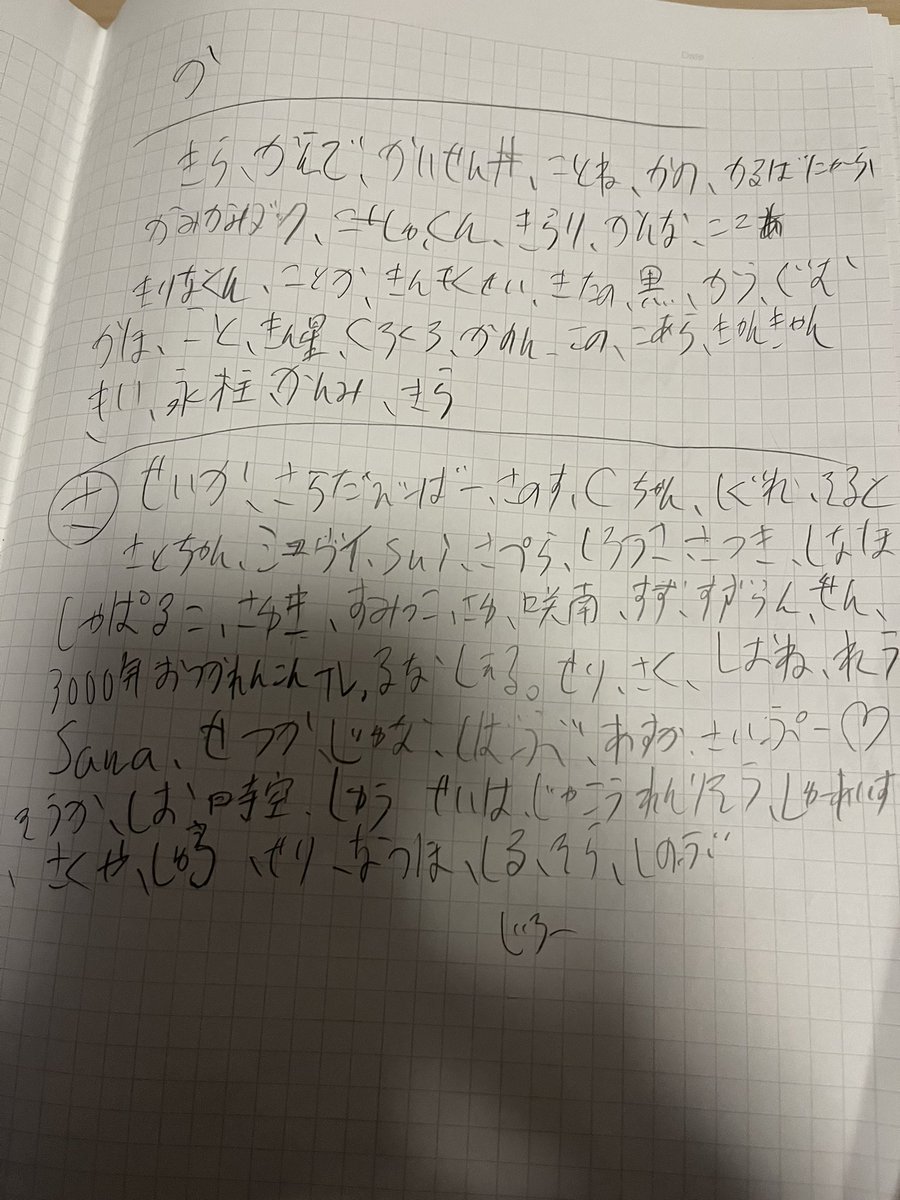 か
Date
きら、かえで、かいせん丼、ことね、かの、かるぱにゃーら
かみかみどり、こせしゅくん、きらり、かんな、ここあ
きりなくん、ことか、きんもくせい、きたの、黒、かう、ぐむ
かほ、こと、きん星、くろくろ、かのん、この、こあら、きかんきかん
きい、氷柱、かんみ、きら
さ
せいか、さらだえいばー、さのす、Cちゃん、しぐれ、そると
さとちゃん、シュヴイ、Sui、さつら、しろうこ、さつき、しなほ
しゃぱるこ、さゆき、すみっこ、さゆ、咲南、すず、すずらん、せん、
3000年おつかれんこんTL、るなしえる。せり、さく、しおね、れう
Sana、せつか、じゅな、しばうべ、あすか、さいうぺー♡
そうか、しお、時空、しゅう せいは、じゃこうれんりそう、しゃーれいす
、さくや、しゅう、せり、なつほ、しる、そら、しのぶ
じろー